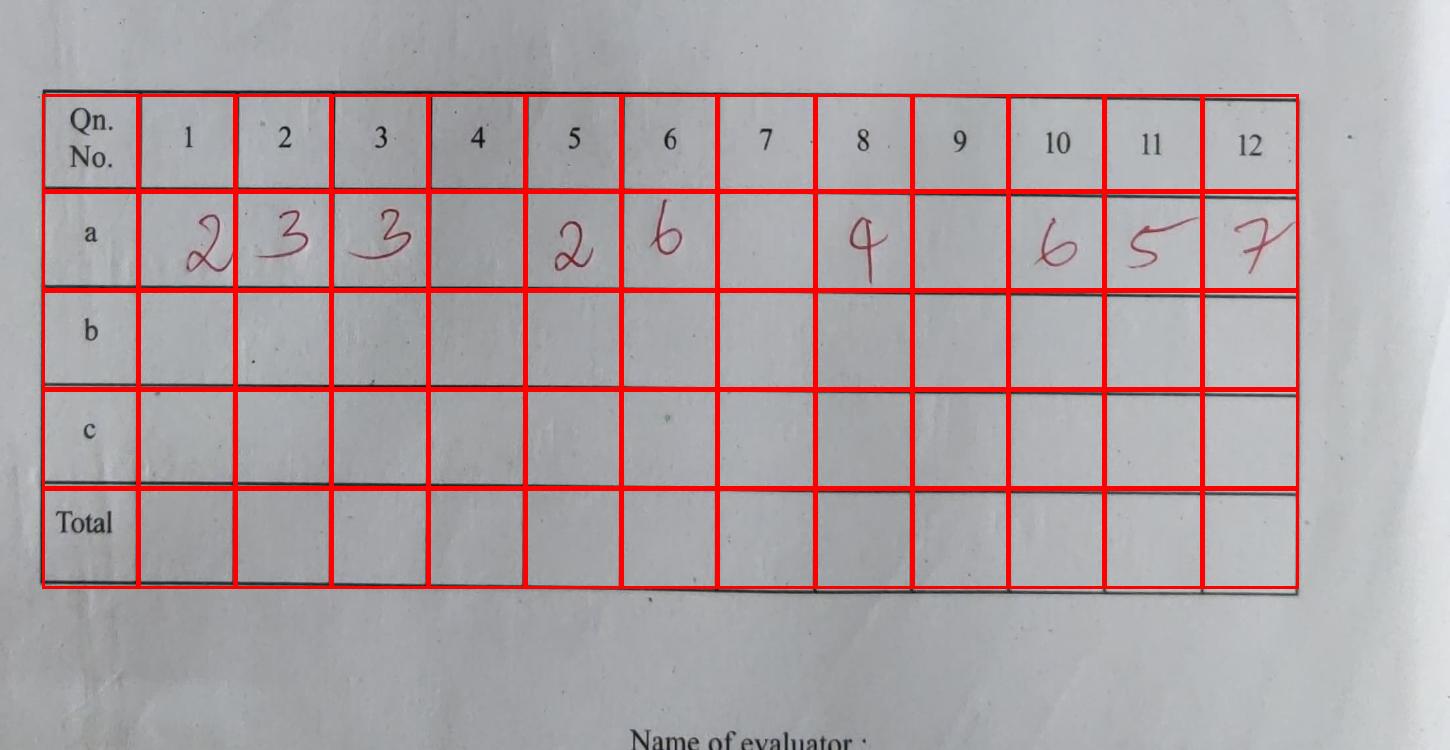 Qn. No. 1 2 3 4 5 6 7 8 9 10 11 12
a 2 3 3 2 6 4 6 5 7
b
c
Total
Name of evaluator :